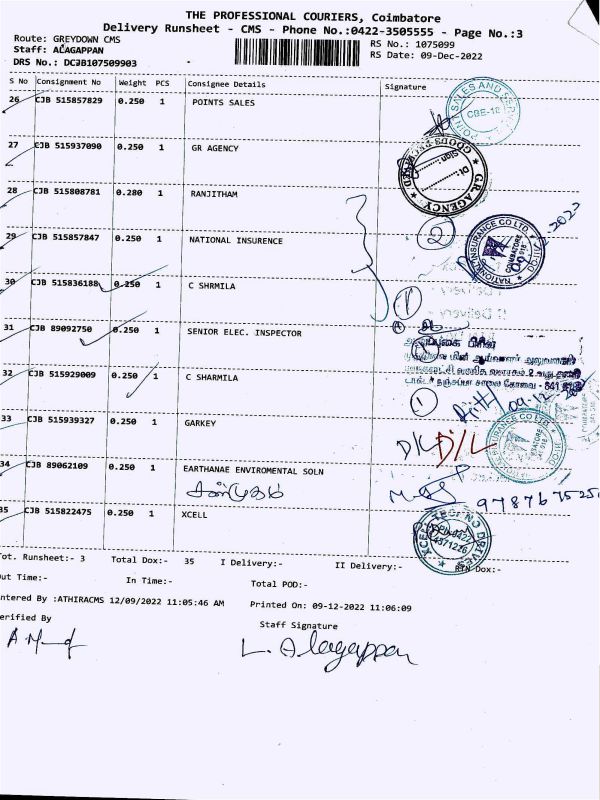 THE PROFESSIONAL COURIERS, Coimbatore
Delivery Runsheet - CMS - Phone No.:0422-3505555 - Page No.:3
Route: GREYDOWN CMS
RS No.: 1075099
Staff: ALAGAPPAN
RS Date: 09-Dec-2022
DRS No.: DCJB107509903
S No Consignment No Weight PCS Consignee Details Signature
26 CJB 515857829 0.250 1 POINTS SALES
SALES AND SERVICE
CBE-18
27 CJB 515937090 0.250 1 GR AGENCY
G.R. AGENCY
28 CJB 515808781 0.280 1 RANJITHAM
2
29 CJB 515857847 0.250 1 NATIONAL INSURENCE
NATIONAL INSURANCE CO LTD.
30 CJB 515836188 0.250 1 C SHRMILA
1
31 CJB 89092750 0.250 1 SENIOR ELEC. INSPECTOR
32 CJB 515929009 0.250 1 C SHARMILA
1
09-12
33 CJB 515939327 0.250 1 GARKEY
D/L D/L
34 CJB 89062109 0.250 1 EARTHANAE ENVIROMENTAL SOLN
சண்முகம்
35 CJB 515822475 0.250 1 XCELL
Tot. Runsheet:- 3 Total Dox:- 35 I Delivery:- II Delivery:- RTN Dox:-
Out Time:- In Time:- Total POD:-
ntered By :ATHIRACMS 12/09/2022 11:05:46 AM Printed On: 09-12-2022 11:06:09
erified By
Staff Signature
L. Alagappan